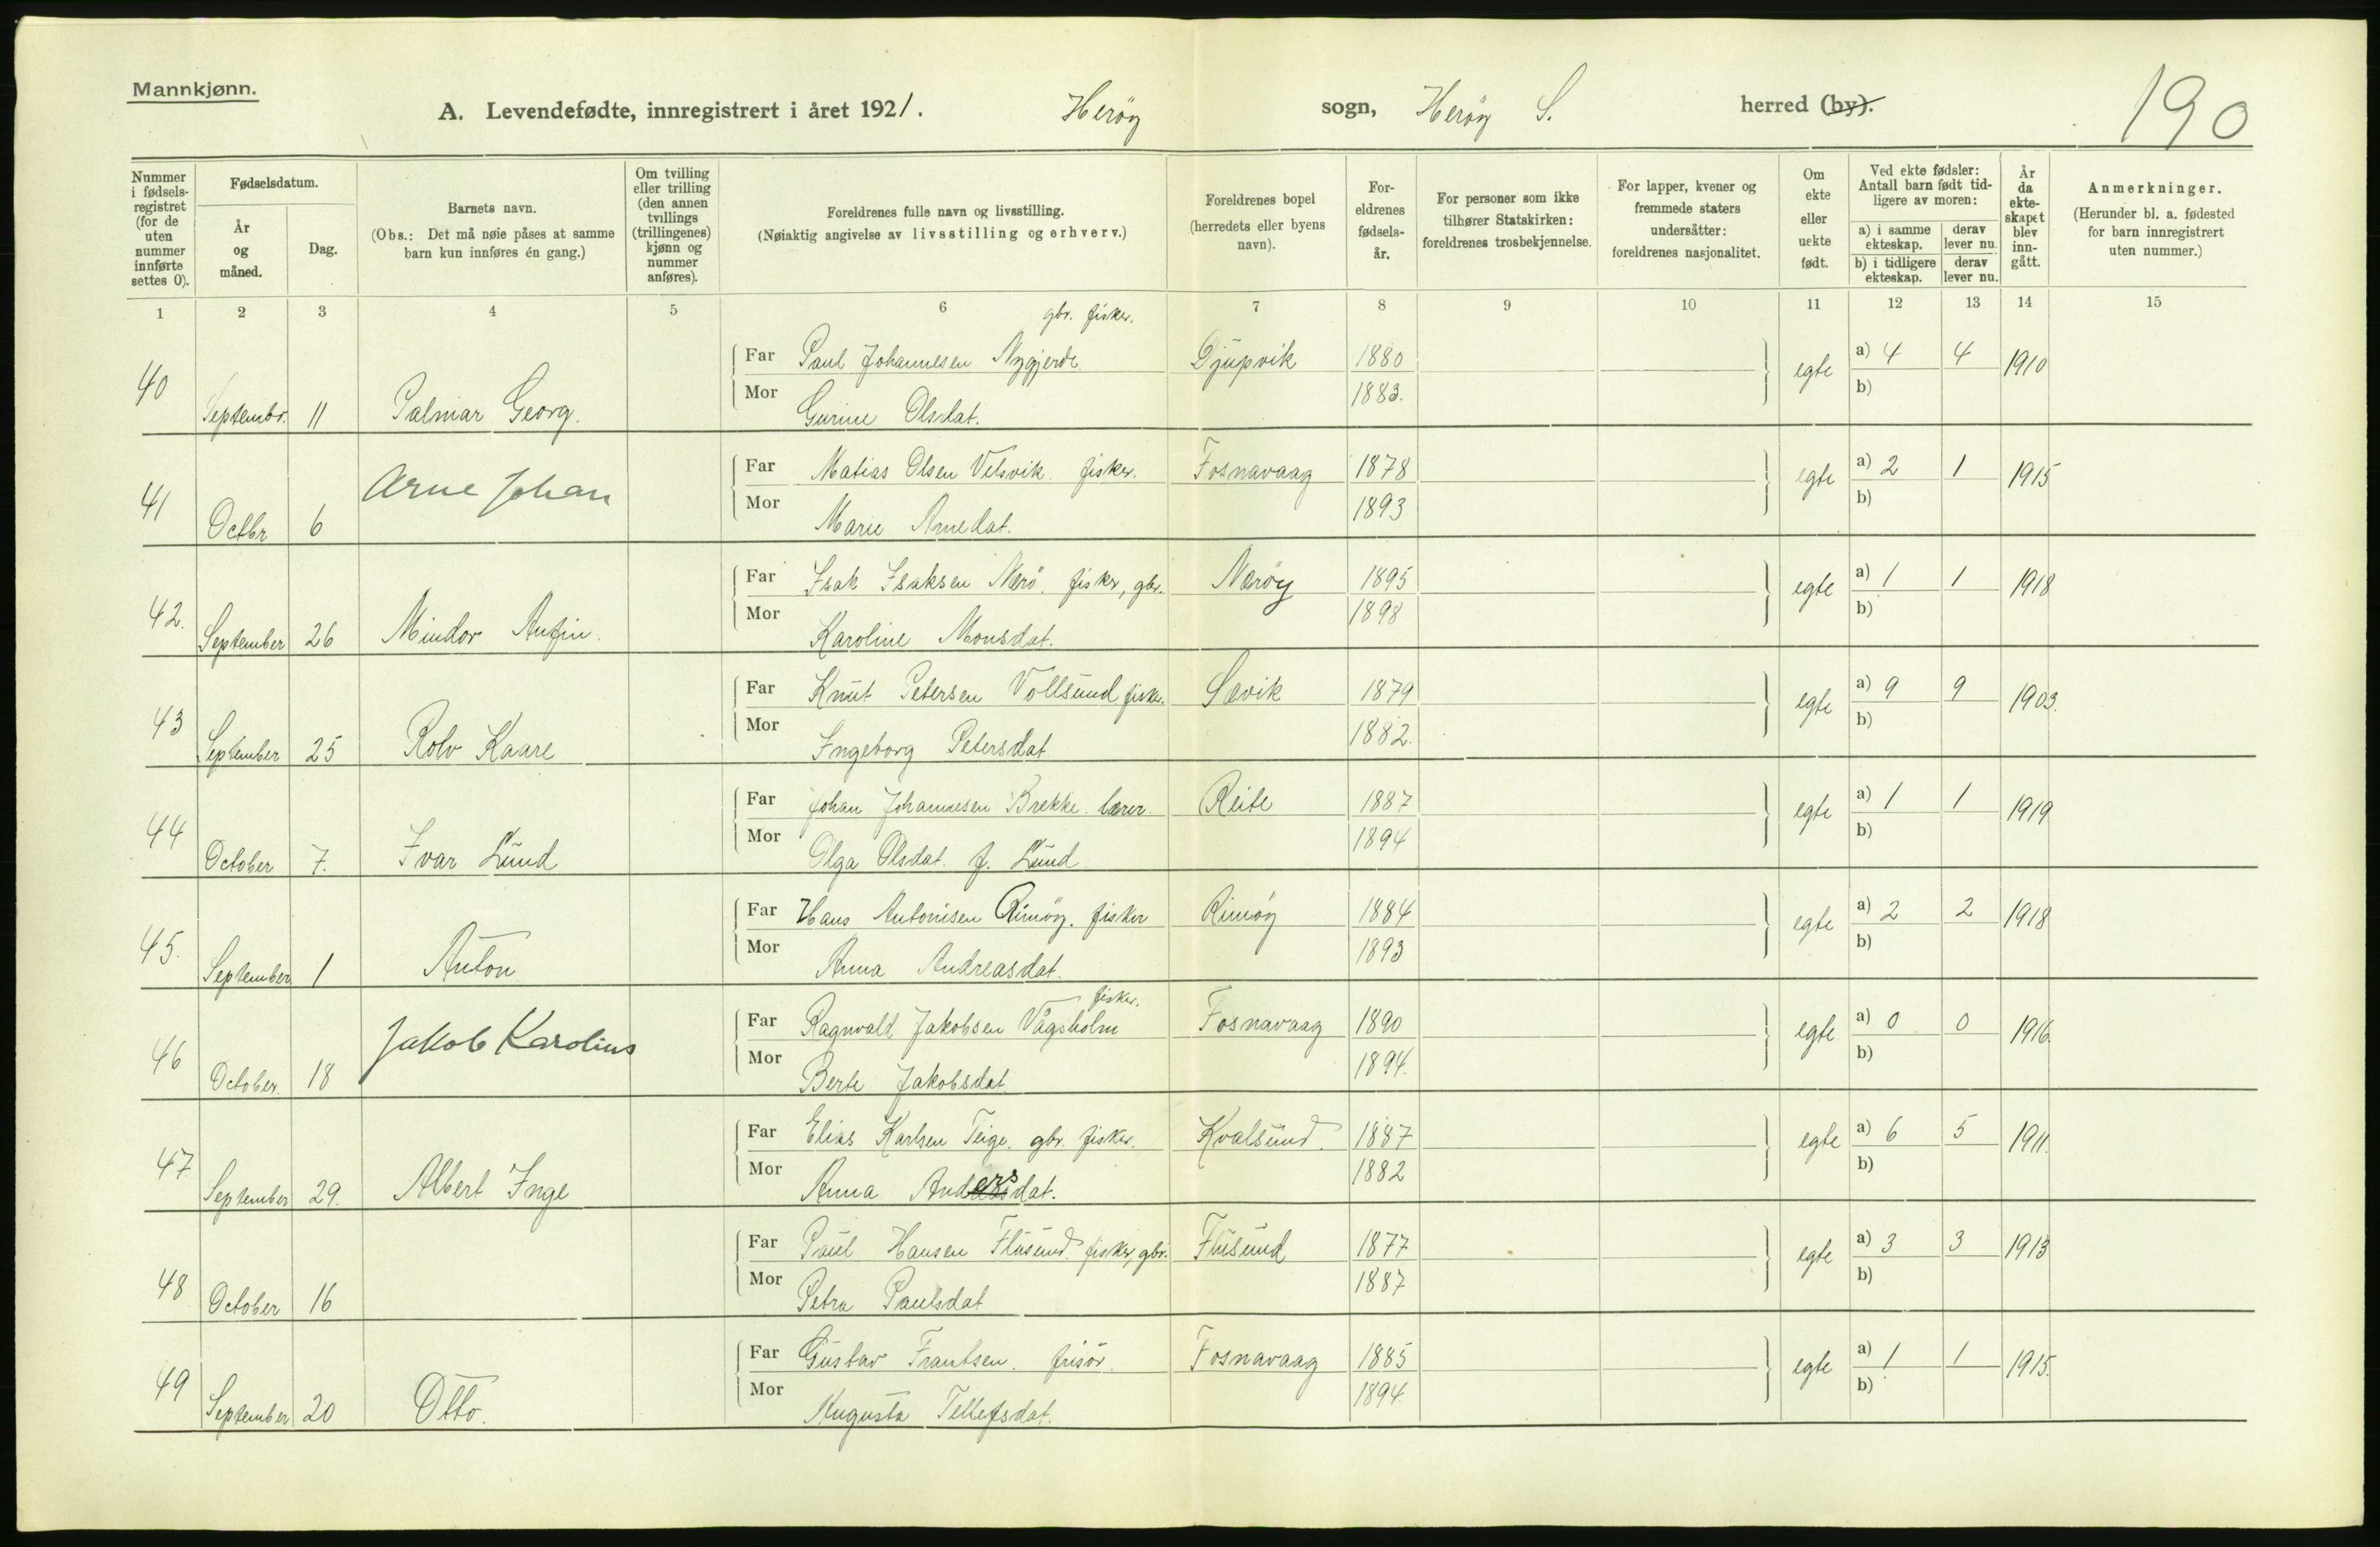 Mannkjønn.
A. Levendefødte, innregistrert i året 1921. Herøy sogn, Herøy S. herred (by). 190
Nummer i fødsels-registret (for de uten nummer innførte settes 0).
Fødselsdatum.
År og måned.
Dag.
Barnets navn.
(Obs.: Det må nøie påses at samme barn kun innføres én gang.)
Om tvilling eller trilling (den annen tvillings (trillingenes) kjønn og nummer anføres).
Foreldrenes fulle navn og livsstilling.
(Nøiaktig angivelse av livsstilling og erhverv.)
Foreldrenes bopel (herredets eller byens navn).
For-eldrenes fødsels-år.
For personer som ikke tilhører Statskirken: foreldrenes trosbekjennelse.
For lapper, kvener og fremmede staters undersåtter: foreldrenes nasjonalitet.
Om ekte eller uekte født.
Ved ekte fødsler: Antall barn født tid-ligere av moren:
a) i samme ekteskap. derav lever nu.
b) i tidligere ekteskap. derav lever nu.
År da ekte-skapet blev inn-gått.
Anmerkninger.
(Herunder bl. a. fødested for barn innregistrert uten nummer.)
1 2 3 4 5 6 7 8 9 10 11 12 13 14 15
gbr. fisker.
Far Paul Johannesen Nygjerde Djupvik 1880 egte a) 4 4 1910
40 Septembr. 11 Palmar Georg. Mor Gurine Olsdat. 1883. b)
Far Matias Olsen Velsvik fisker. Fosnavaag 1878 egte a) 2 1 1915
41 Octbr 6 Arne Johan Mor Marie Arnedat. 1893 b)
Far Isak Isaksen Nerö. fisker, gbr. Neröy 1895 egte a) 1 1 1918
42. September 26 Mindor Anfin. Mor Karoline Monsdat. 1898 b)
Far Knut Petersen Vollsund fisker. Sævik 1879 egte a) 9 9 1903.
43 September 25 Rolv Kaare Mor Ingeborg Petersdat 1882. b)
Far Johan Johannesen Brekke. lærer. Reite 1887 egte a) 1 1 1919
44 October 7. Ivar Lund Mor Olga Olsdat. f. Lund 1894 b)
Far Hans Antonisen Rimöy. fisker Rimöy 1884 egte a) 2 2 1918
45. September 1 Anton Mor Anna Andreasdat. 1893 b)
fisker.
Far Ragnvald Jakobsen Vågsholm Fosnavaag 1890 egte a) 0 0 1916.
46 October. 18 Jakob Karolius Mor Berte Jakobsdat 1894. b)
Far Elias Karlsen Teige. gbr. fisker. Kvalsund. 1887 egte a) 6 5 1911.
47 September 29. Albert Inge Mor Anna Andersdat. 1882 b)
Far Paul Hansen Flusund fisker, gbr. Flusund 1877 egte a) 3 3 1913
48 October 16 Mor Petra Paulsdat 1887 b)
Far Gustav Frantsen. frisör. Fosnavaag 1885 egte a) 1 1 1915.
49 September 20 Otto. Mor Augusta Tellefsdat. 1894. b)